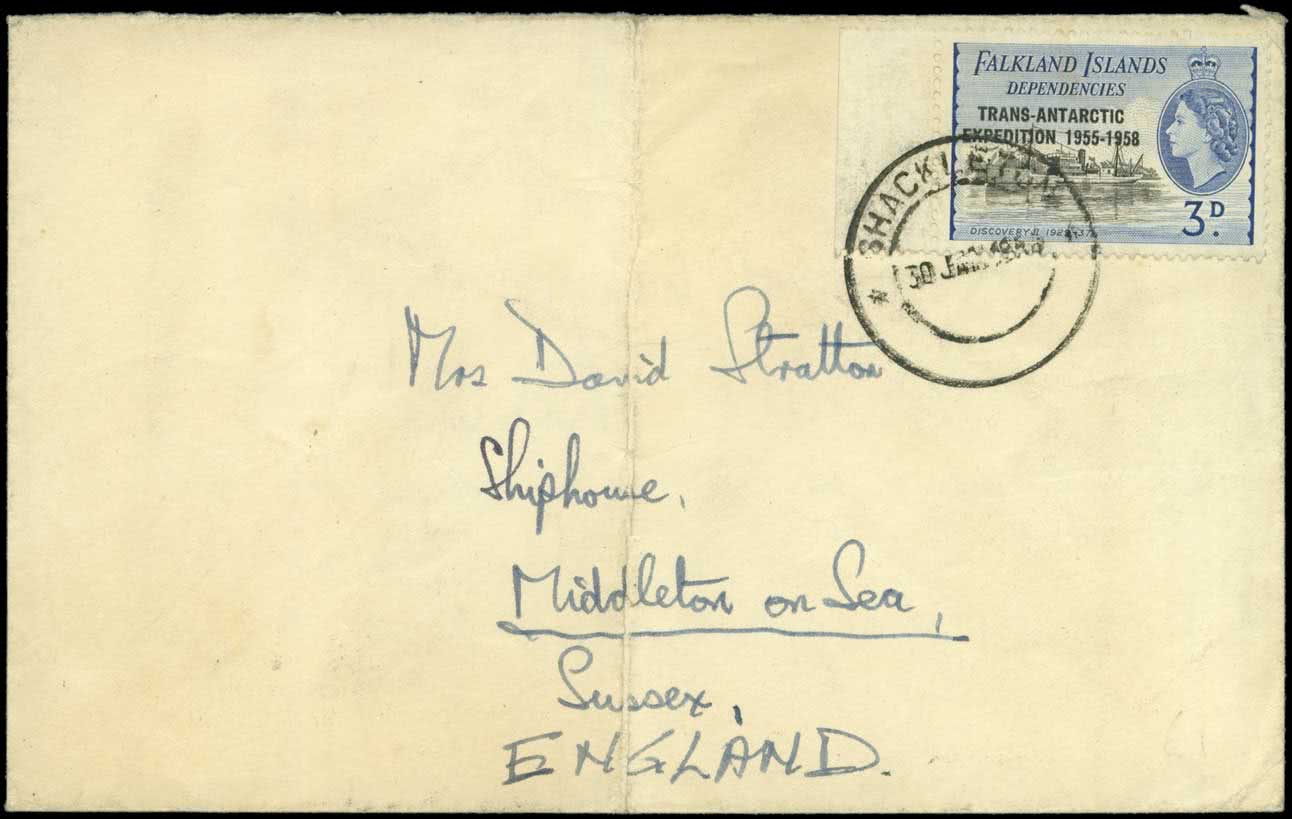 FALKLAND ISLANDS
DEPENDENCIES
TRANS-ANTARCTIC
EXPEDITION 1955-1958
3D.
DISCOVERY II. 1929-37
30 JAN
Mrs David Stratton
Shiphouse,
Middleton on Sea,
Sussex,
ENGLAND.